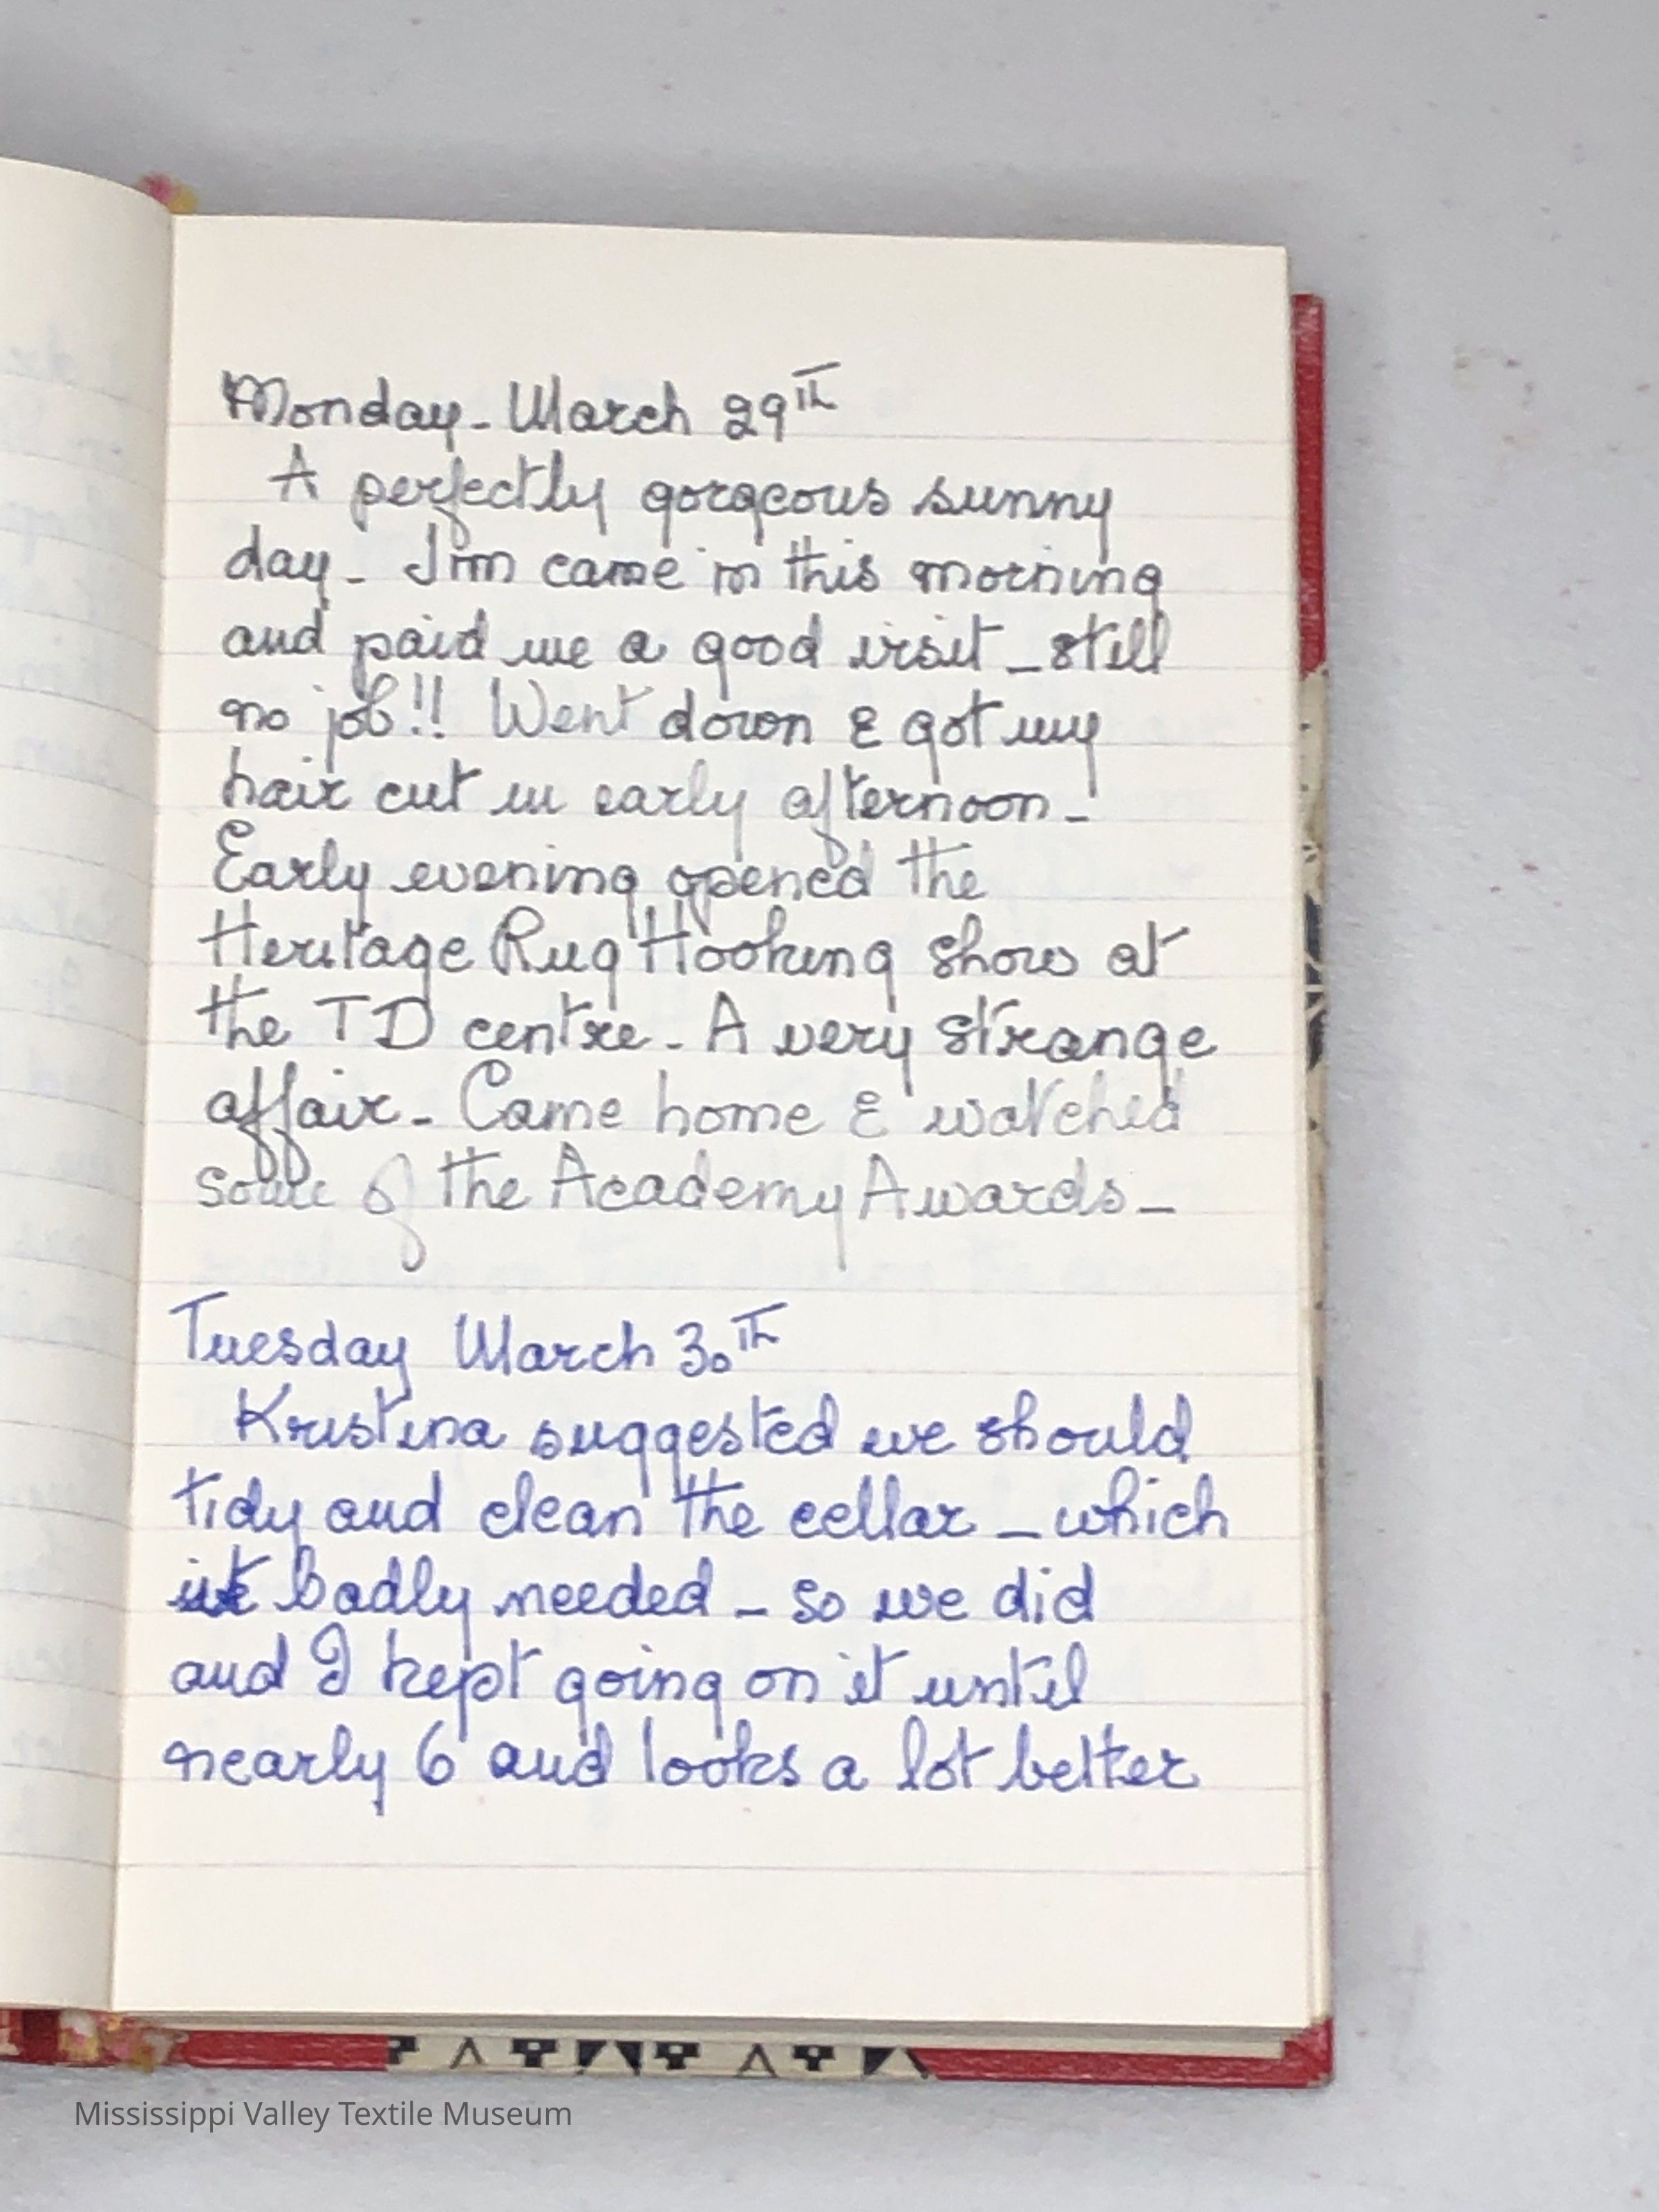 Monday - March 29th
A perfectly gorgeous sunny
day - Jim came in this morning
and paid me a good visit - still
no job!! Went down & got my
hair cut in early afternoon -
Early evening opened the
Heritage Rug Hooking show at
the TD centre - A very strange
affair - Came home & watched
some of the Academy Awards -
Tuesday March 30th
Kristina suggested we should
tidy and clean the cellar - which
it badly needed - so we did
and I kept going on it until
nearly 6 and looks a lot better
Mississippi Valley Textile Museum